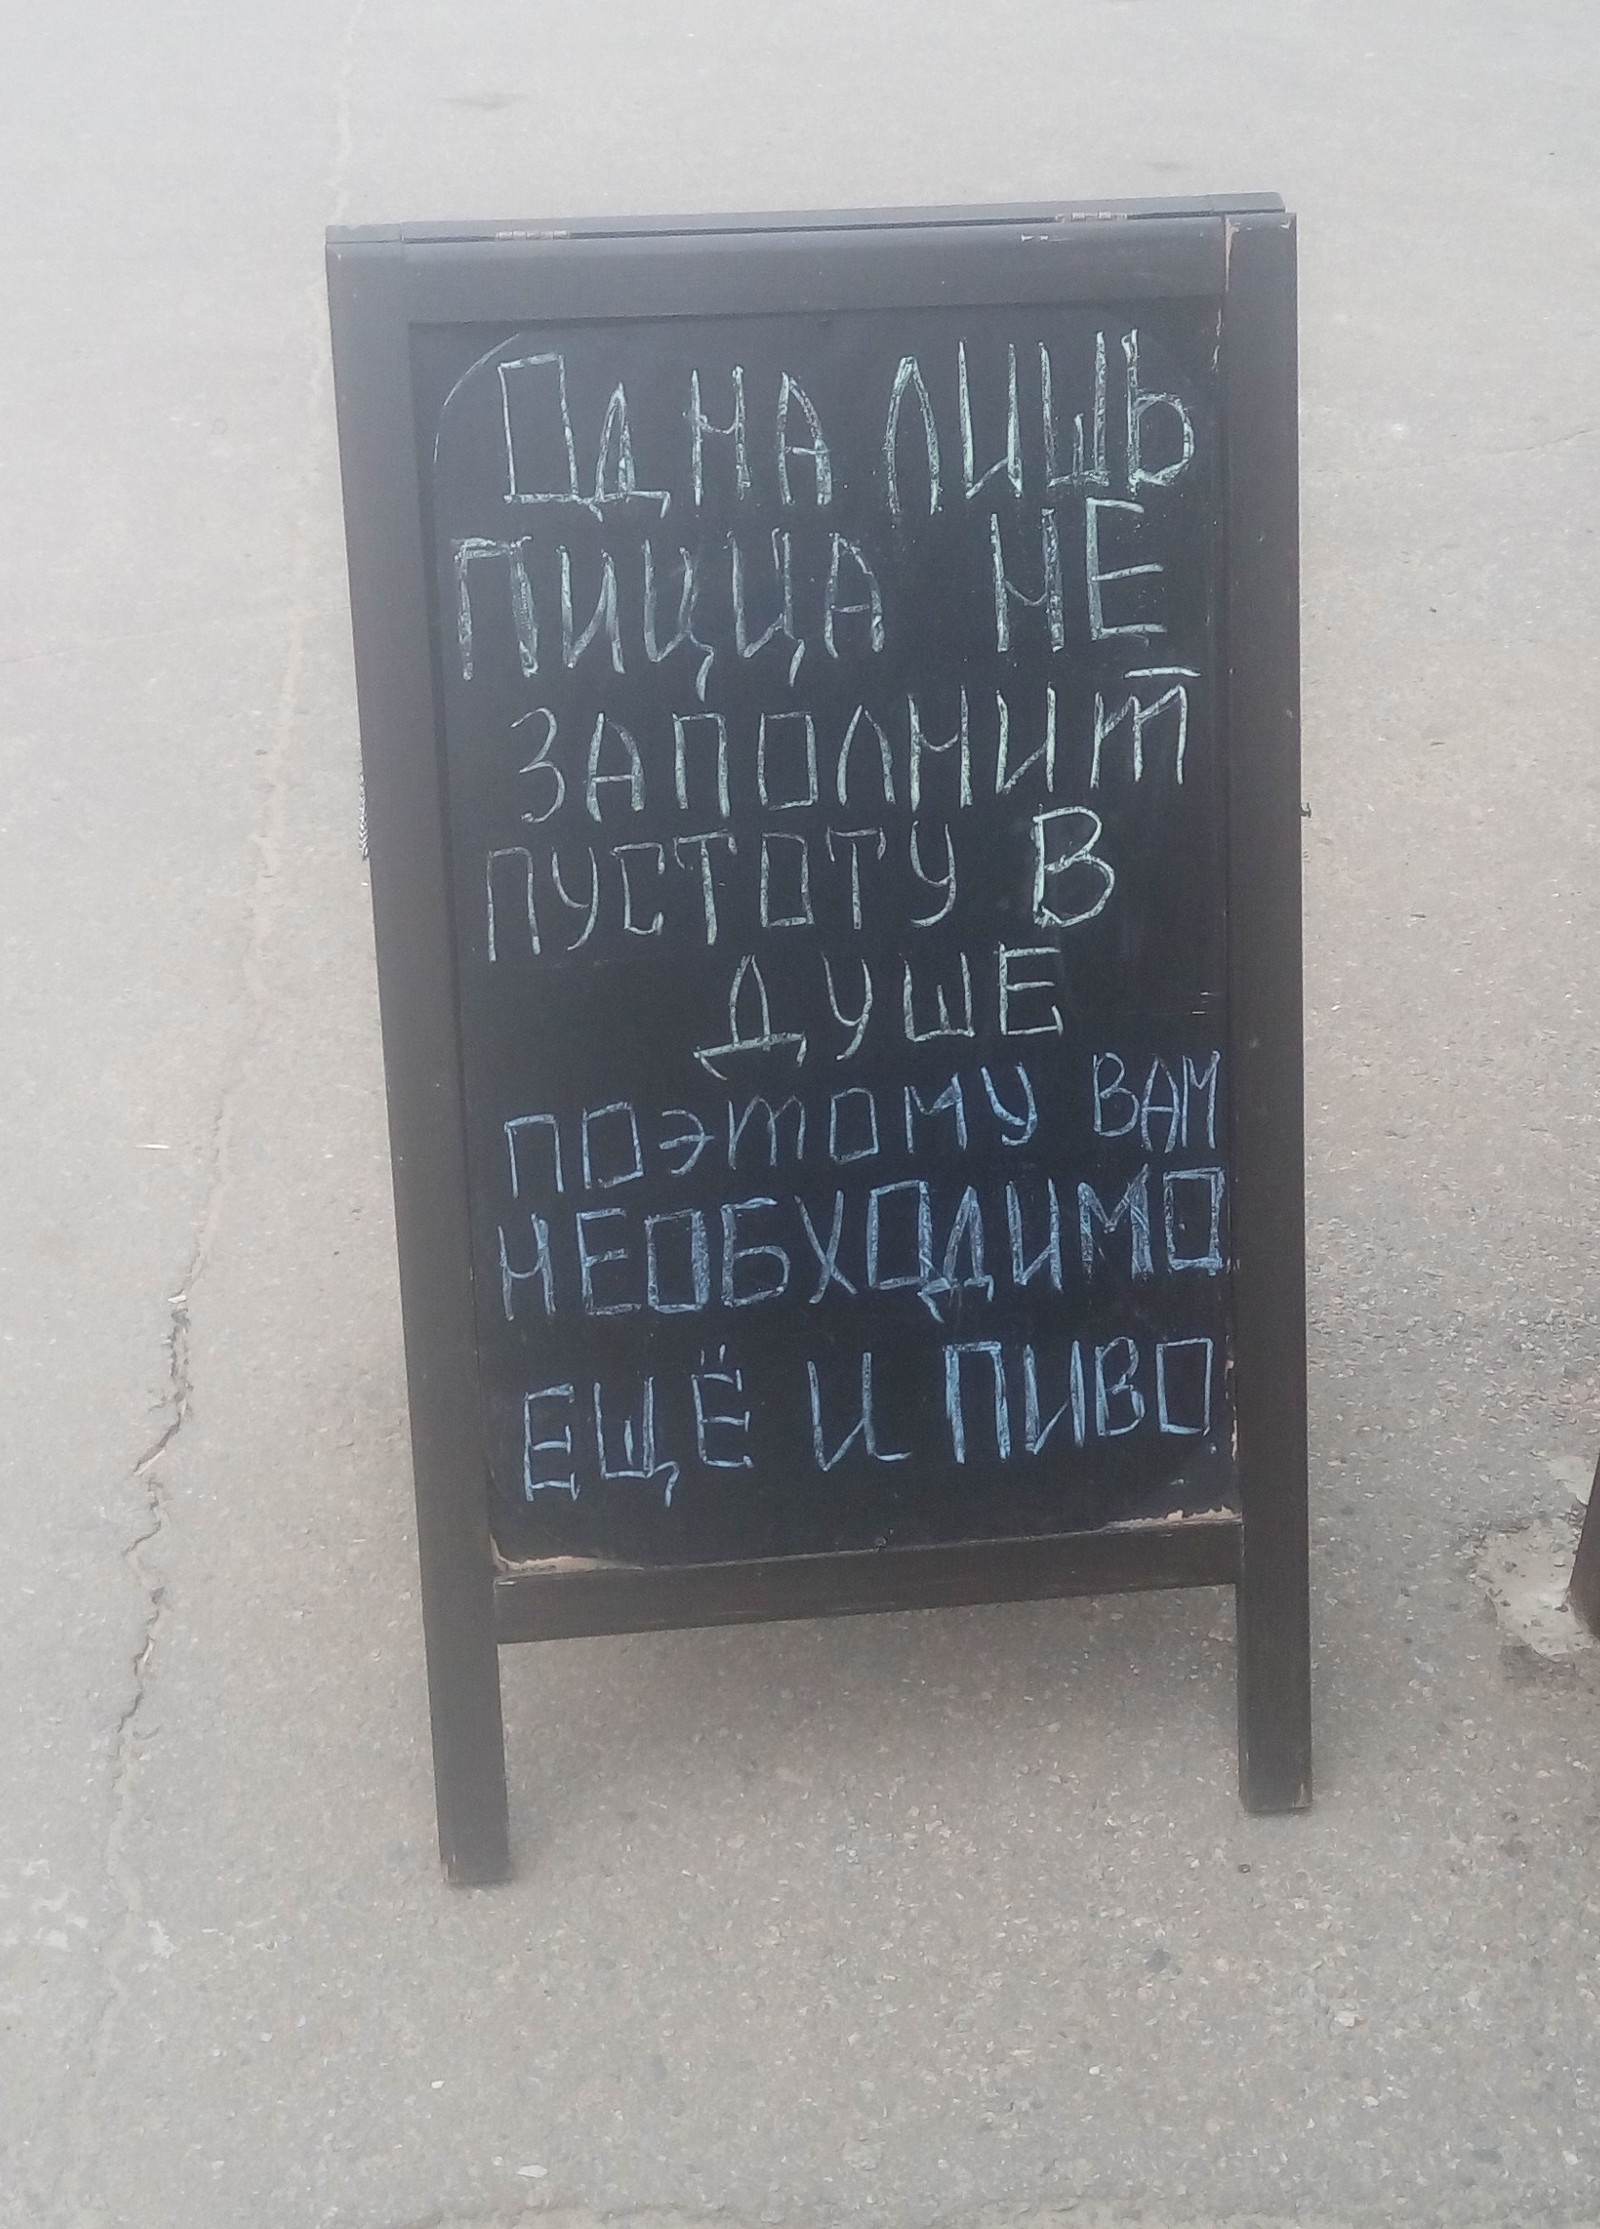 ОДНА ЛИШЬ
ПИЦЦА НЕ
ЗАПОЛНИТ
ПУСТОТУ В
ДУШЕ
ПОЭТОМУ ВАМ
НЕОБХОДИМО
ЕЩЁ И ПИВО.